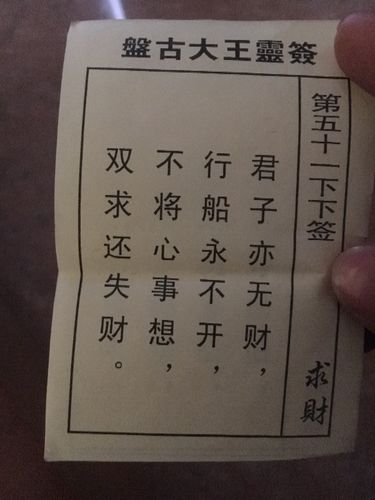 盤古大王靈簽
第五十一下下签
求財
君子亦无财，
行船永不开，
不将心事想，
双求还失财。